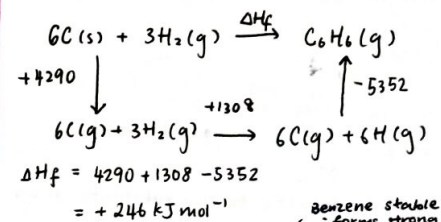 ΔHf
6C(s) + 3H₂(g) → C₆H₆(g)
+4290
-5352
+1308
6C(g) + 3H₂(g) → 6C(g) + 6H(g)
ΔHf = 4290 + 1308 - 5352
= + 246 kJ mol⁻¹
Benzene stable
forms strong